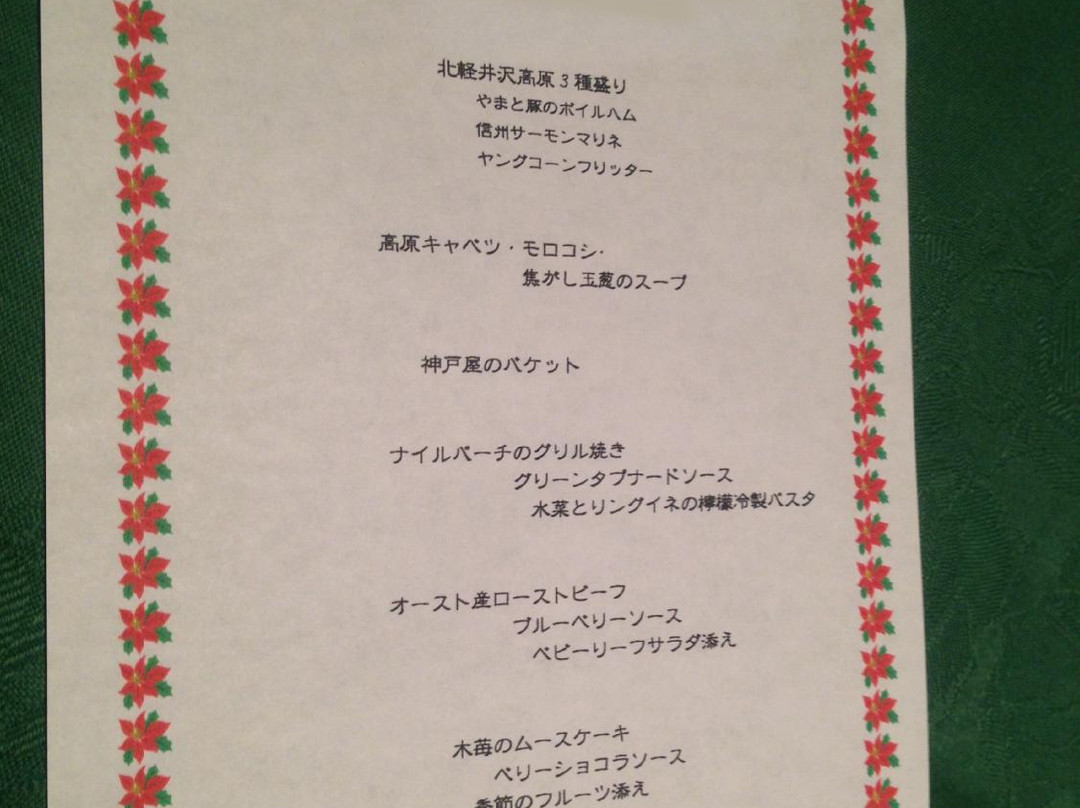 北軽井沢高原3種盛り
やまと豚のボイルハム
信州サーモンマリネ
ヤングコーンフリッター
高原キャベツ・モロコシ・
焦がし玉葱のスープ
神戸屋のバケット
ナイルパーチのグリル焼き
グリーンタプナードソース
水菜とリングイネの檸檬冷製パスタ
オースト産ローストビーフ
ブルーベリーソース
ベビーリーフサラダ添え
木苺のムースケーキ
ベリーショコラソース
季節のフルーツ添え